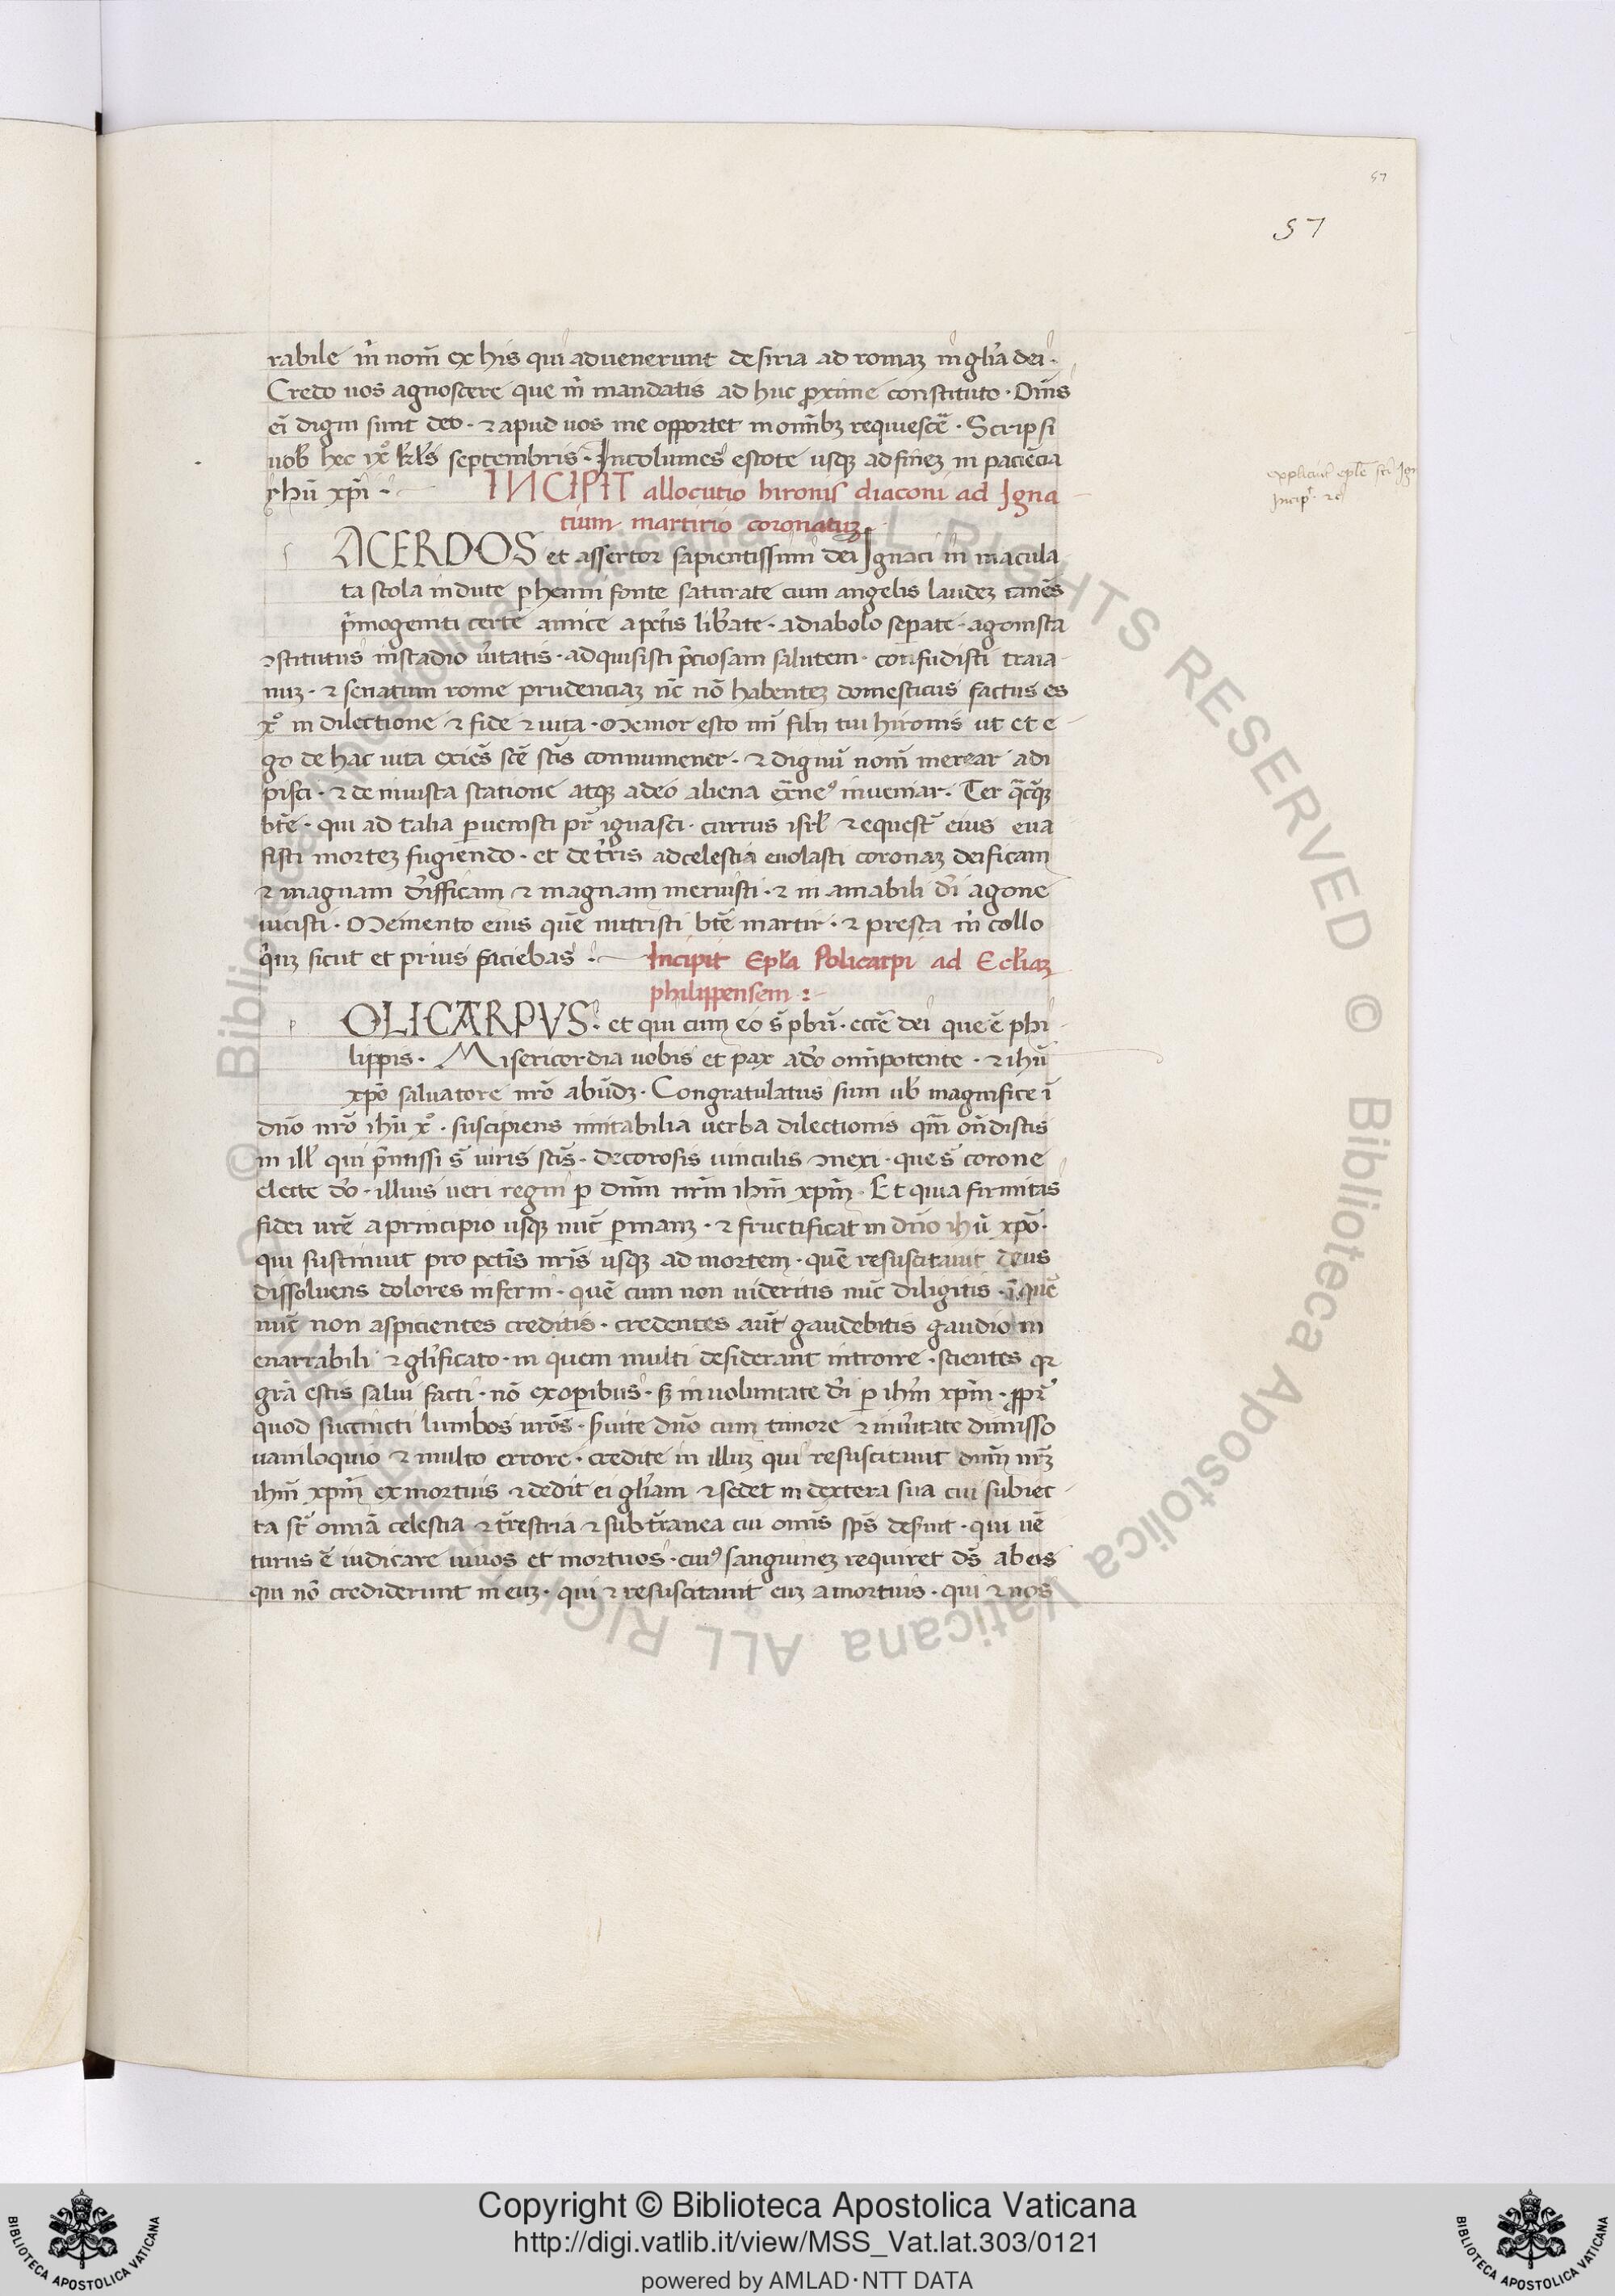 57
57
rabile m̄ nom̄ ex his qui aduenerunt de siria ad romaȝ in gl̄ia dei ·
Credo uos agnoscere que m̄ mandatis ad huc ꝓxime constituto · Om̄s
ei̅ digni sunt deo · ⁊ apud uos me opportet in om̄ibȝ requiesce̅ · Scripsi
uob̄ hec ix° kl̄s septembris · Incolumes estote usqȝ ad fineȝ in pacie̅cia
ihū xp̄i ·
INCIPIT allocutio hironis diaconi ad Igna
tium martirio coronatuȝ ·
explīciūt epl̄e sc̄i Ign
Incip̄ ⁊c
s ACERDOS et assertor sapientissimi dei Ignaci in macula
ta stola indute perhenni fonte saturate cum angelis laudeȝ canēs
p̄mogeniti certe amice a pctīs lib̄ate · a diabolo separate · agonista
ꝯstitutus in stadio ūitatis · adquisisti p̄ciosam salutem · confudisti traia
nuȝ · ⁊ senatum rome prudenciaȝ nc̄ nō habenteȝ domesticus factus es
x° in dilectione ⁊ fide ⁊ uita · Memor esto mī filii tui hironis ut et e
go de hac uita exiēs sc̄e sc̄is connumener · ⁊ dignū nom̄ merear adi
pisci · ⁊ de iniusta statione atqȝ a deo aliena inueniar · Ter
bt̄e · qui ad talia ꝑuenisti pr̄ ignasci · currus isrl̄ ⁊ equest̄ eius eua
sisti morteȝ fugiendo · et de t̄ris ad celestia euolasti coronaȝ deificam
⁊ magnam d̄ifficam ⁊ magnam meruisti · ⁊ in amabili d̄i agone
uicisti · Memento eius quē nutristi bt̄e martir · ⁊ presta m̄ collo
q̄uȝ sicut et prius faciebas ·
Incipit Epl̄a Policarpi ad Eccl̄iaȝ
philippensem :
p OLICARPVS · et qui cum eo s̄ pbrī · eccl̄e dei que ē phi
lippis · Misericordia uobis et pax a d̄o om̄ipotente · ⁊ ihū
xp̄o saluatore nr̄o abūdȝ · Congratulatus sum ub̄ magnifice ī
dn̄o nr̄o ihū x° · suscipiens imitabilia uerba dilectionis qm̄ on̄distis
in ill̄ qui p̄missi s̄ uiris sc̄is · decorosis uinculis ꝯnexi · que s̄ corone
electe d̄o · illius ueri regni ꝑ dnm̄ nrm̄ ihm̄ xpm̄ · Et quia firmitas
fidei ur̄e a principio usqȝ nūc ꝑmanȝ · ⁊ fructificat in dn̄o ihū xp̄o ·
qui sustinuit pro pctīs nrīs usqȝ ad mortem · quē resuscitauit deus
dissoluens dolores inferni · quē cum non uideritis nūc diligitis · ī quē
nūc non aspicientes creditis · credentes aūt gaudebitis gaudio in
enarrabili ⁊ gl̄ificato · in quem multi desiderant introire · scientes qr
grā estis salui facti · nō ex opibus · sȝ in uoluntate d̄i ꝑ ihm̄ xpm̄ · ꝓpt̄
quod succincti lumbos uros̄ · s̄uite dn̄o cum timore ⁊ in ūitate dimisso
uaniloquio ⁊ multo errore · credite in illuȝ qui resuscitauit dnm̄ nrȝ
ihm̄ xpm̄ ex mortuis ⁊ dedit ei gl̄iam ⁊ sedet in dextera sua cui subiec
ta st̄ omiā celestia ⁊ t̄restria ⁊ subt̄ranea cui omīs sps̄ des̄uit · qui uē
turus ē iudicare uiuos et mortuos · cui9 sanguineȝ requiret ds̄ ab eis
qui nō crediderunt in euȝ · qui ⁊ resuscitauit euȝ a mortuis · qui ⁊ nos
© Biblioteca Apostolica Vaticana ALL RIGHTS RESERVED
© Biblioteca Apostolica Vaticana ALL RIGHTS RESERVED
BIBLIOTECA APOSTOLICA VATICANA
Copyright © Biblioteca Apostolica Vaticana
http://digi.vatlib.it/view/MSS_Vat.lat.303/0121
powered by AMLAD·NTT DATA
BIBLIOTECA APOSTOLICA VATICANA